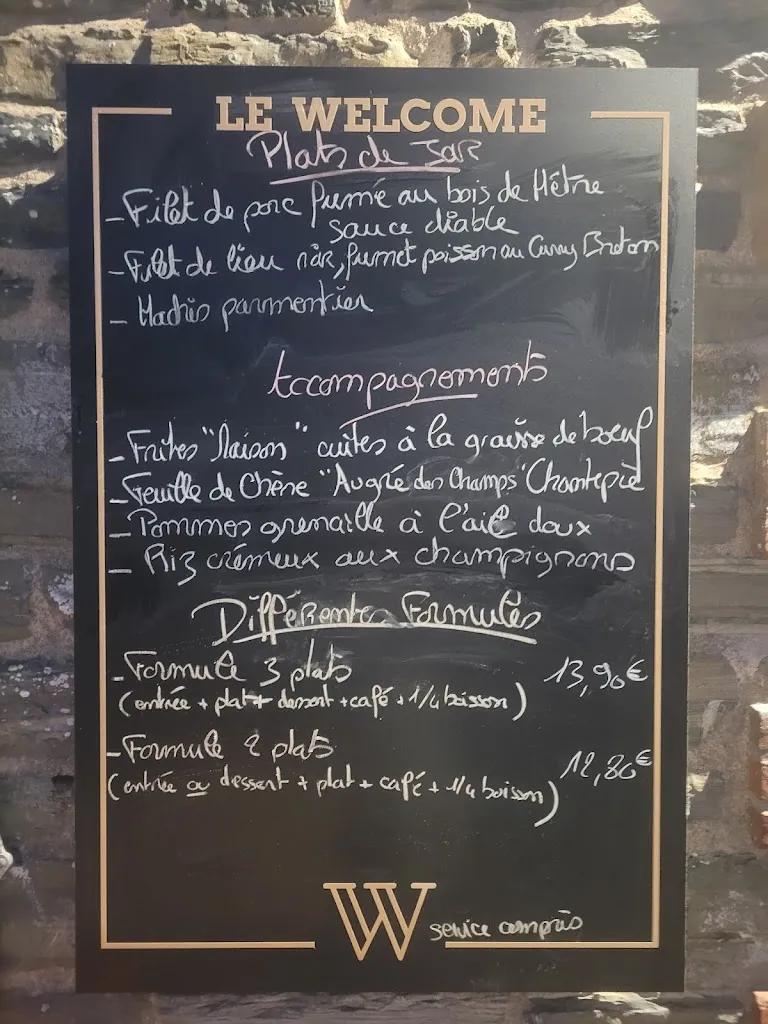 LE WELCOME
Plats de Jour
- Filet de porc fumé au bois de Hêtre
sauce diable
- Filet de lieu noir, fumet poisson au Curry Breton
- Hachis parmentier
Accompagnements
- Frites "Maison" cuites à la graisse de boeuf
- Feuille de Chêne "Augré des Champs" Chantepie
- Pommes grenaille à l'ail doux
- Riz crémeux aux champignons
Différentes Formules
- Formule 3 plats 13,90€
(entrée + plat + dessert + café + 1/4 boisson)
- Formule 2 plats
12,80€
(entrée ou dessert + plat + café + 1/4 boisson)
W service compris